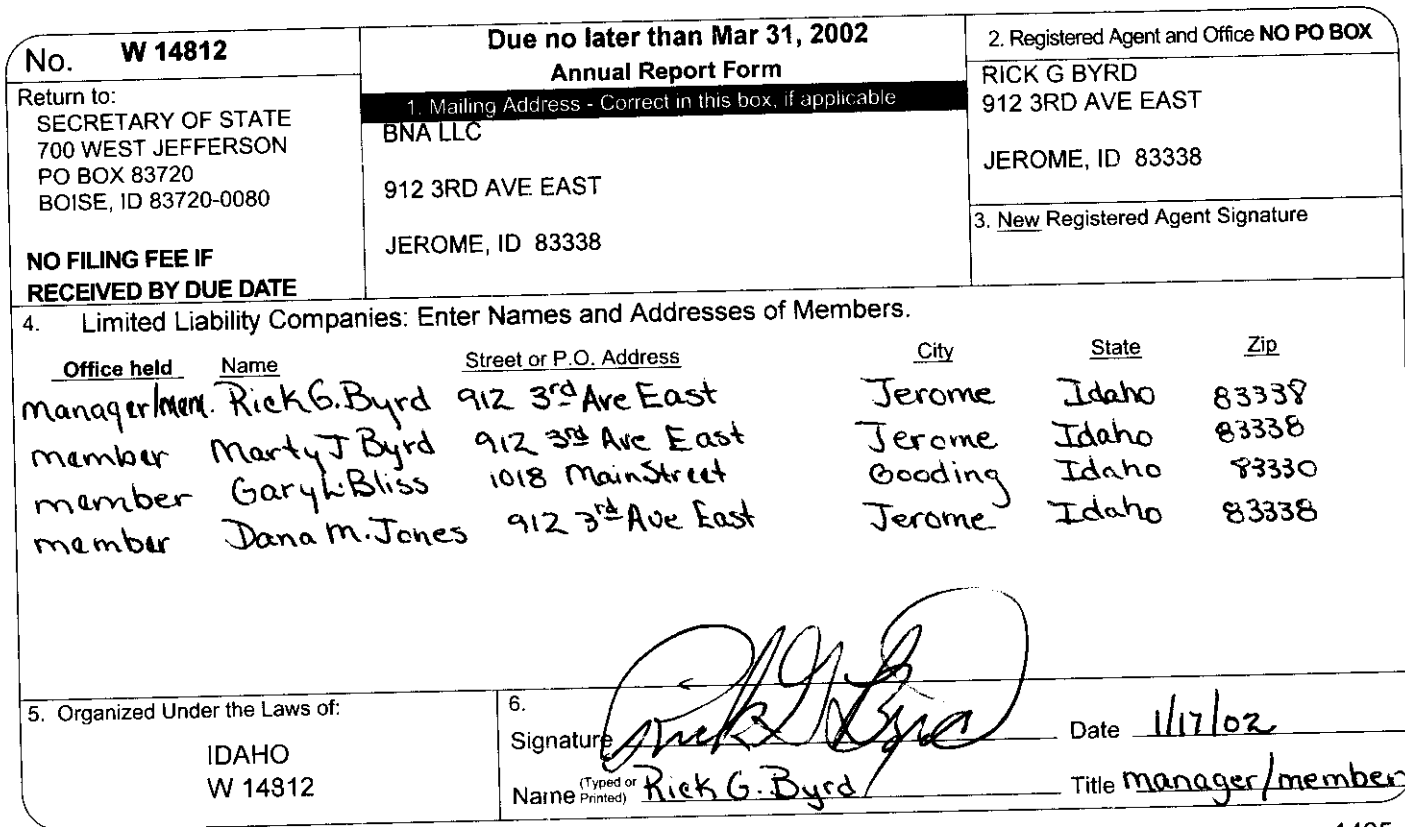 No. W 14812
Return to:
SECRETARY OF STATE
700 WEST JEFFERSON
PO BOX 83720
BOISE, ID 83720-0080
NO FILING FEE IF
RECEIVED BY DUE DATE
Due no later than Mar 31, 2002
Annual Report Form
1. Mailing Address - Correct in this box, if applicable
BNA LLC
912 3RD AVE EAST
JEROME, ID 83338
2. Registered Agent and Office NO PO BOX
RICK G BYRD
912 3RD AVE EAST
JEROME, ID 83338
3. New Registered Agent Signature
4. Limited Liability Companies: Enter Names and Addresses of Members.
Office held Name Street or P.O. Address City State Zip
manager/mem. Rick G. Byrd 912 3rd Ave East Jerome Idaho 83338
member Marty J Byrd 912 3rd Ave East Jerome Idaho 83338
member Gary L Bliss 1018 Main Street Gooding Idaho 83330
member Dana M. Jones 912 3rd Ave East Jerome Idaho 83338
5. Organized Under the Laws of:
IDAHO
W 14812
6.
Signature Rick G Byrd Date 1/17/02
Name (Typed or Printed) Rick G. Byrd Title manager/member